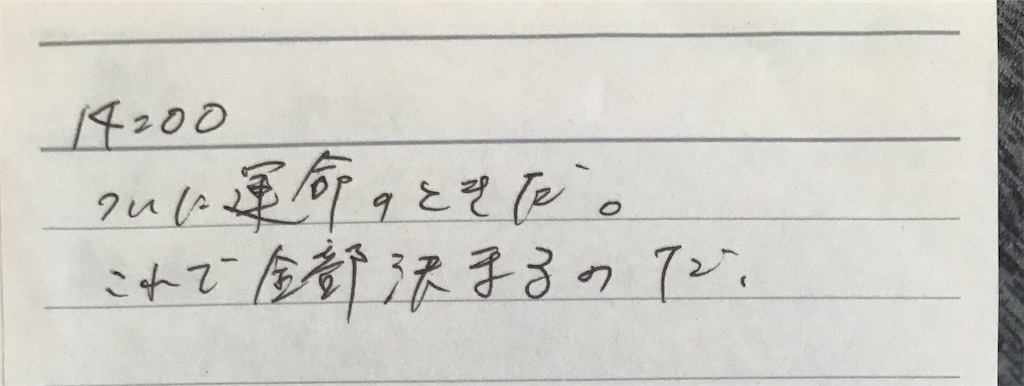 14:00
ついに運命のときだ。
これで全部決まるのだ.